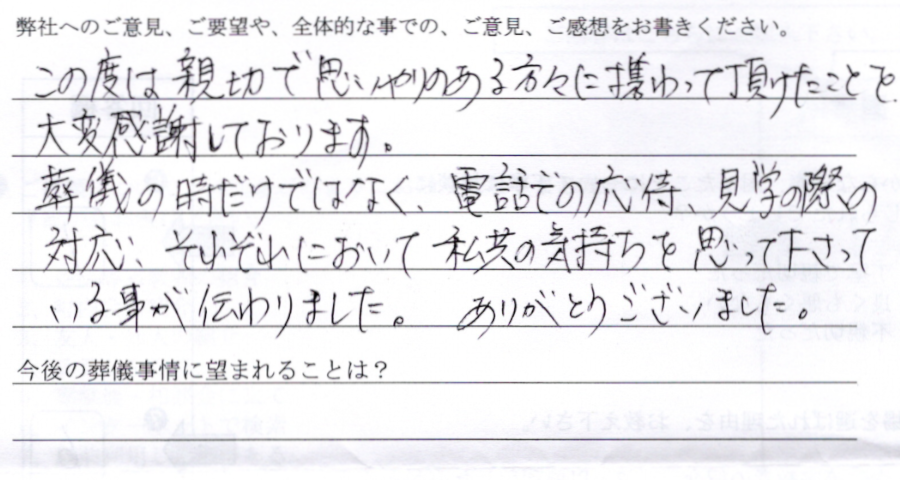 弊社へのご意見、ご要望や、全体的な事での、ご意見、ご感想をお書きください。
この度は親切で思いやりのある方々に携わって頂けたことを
大変感謝しております。
葬儀の時だけではなく、電話での応待、見学の際の
対応、それぞれにおいて私共の気持ちを思って下さって
いる事が伝わりました。 ありがとうございました。
今後の葬儀事情に望まれることは？